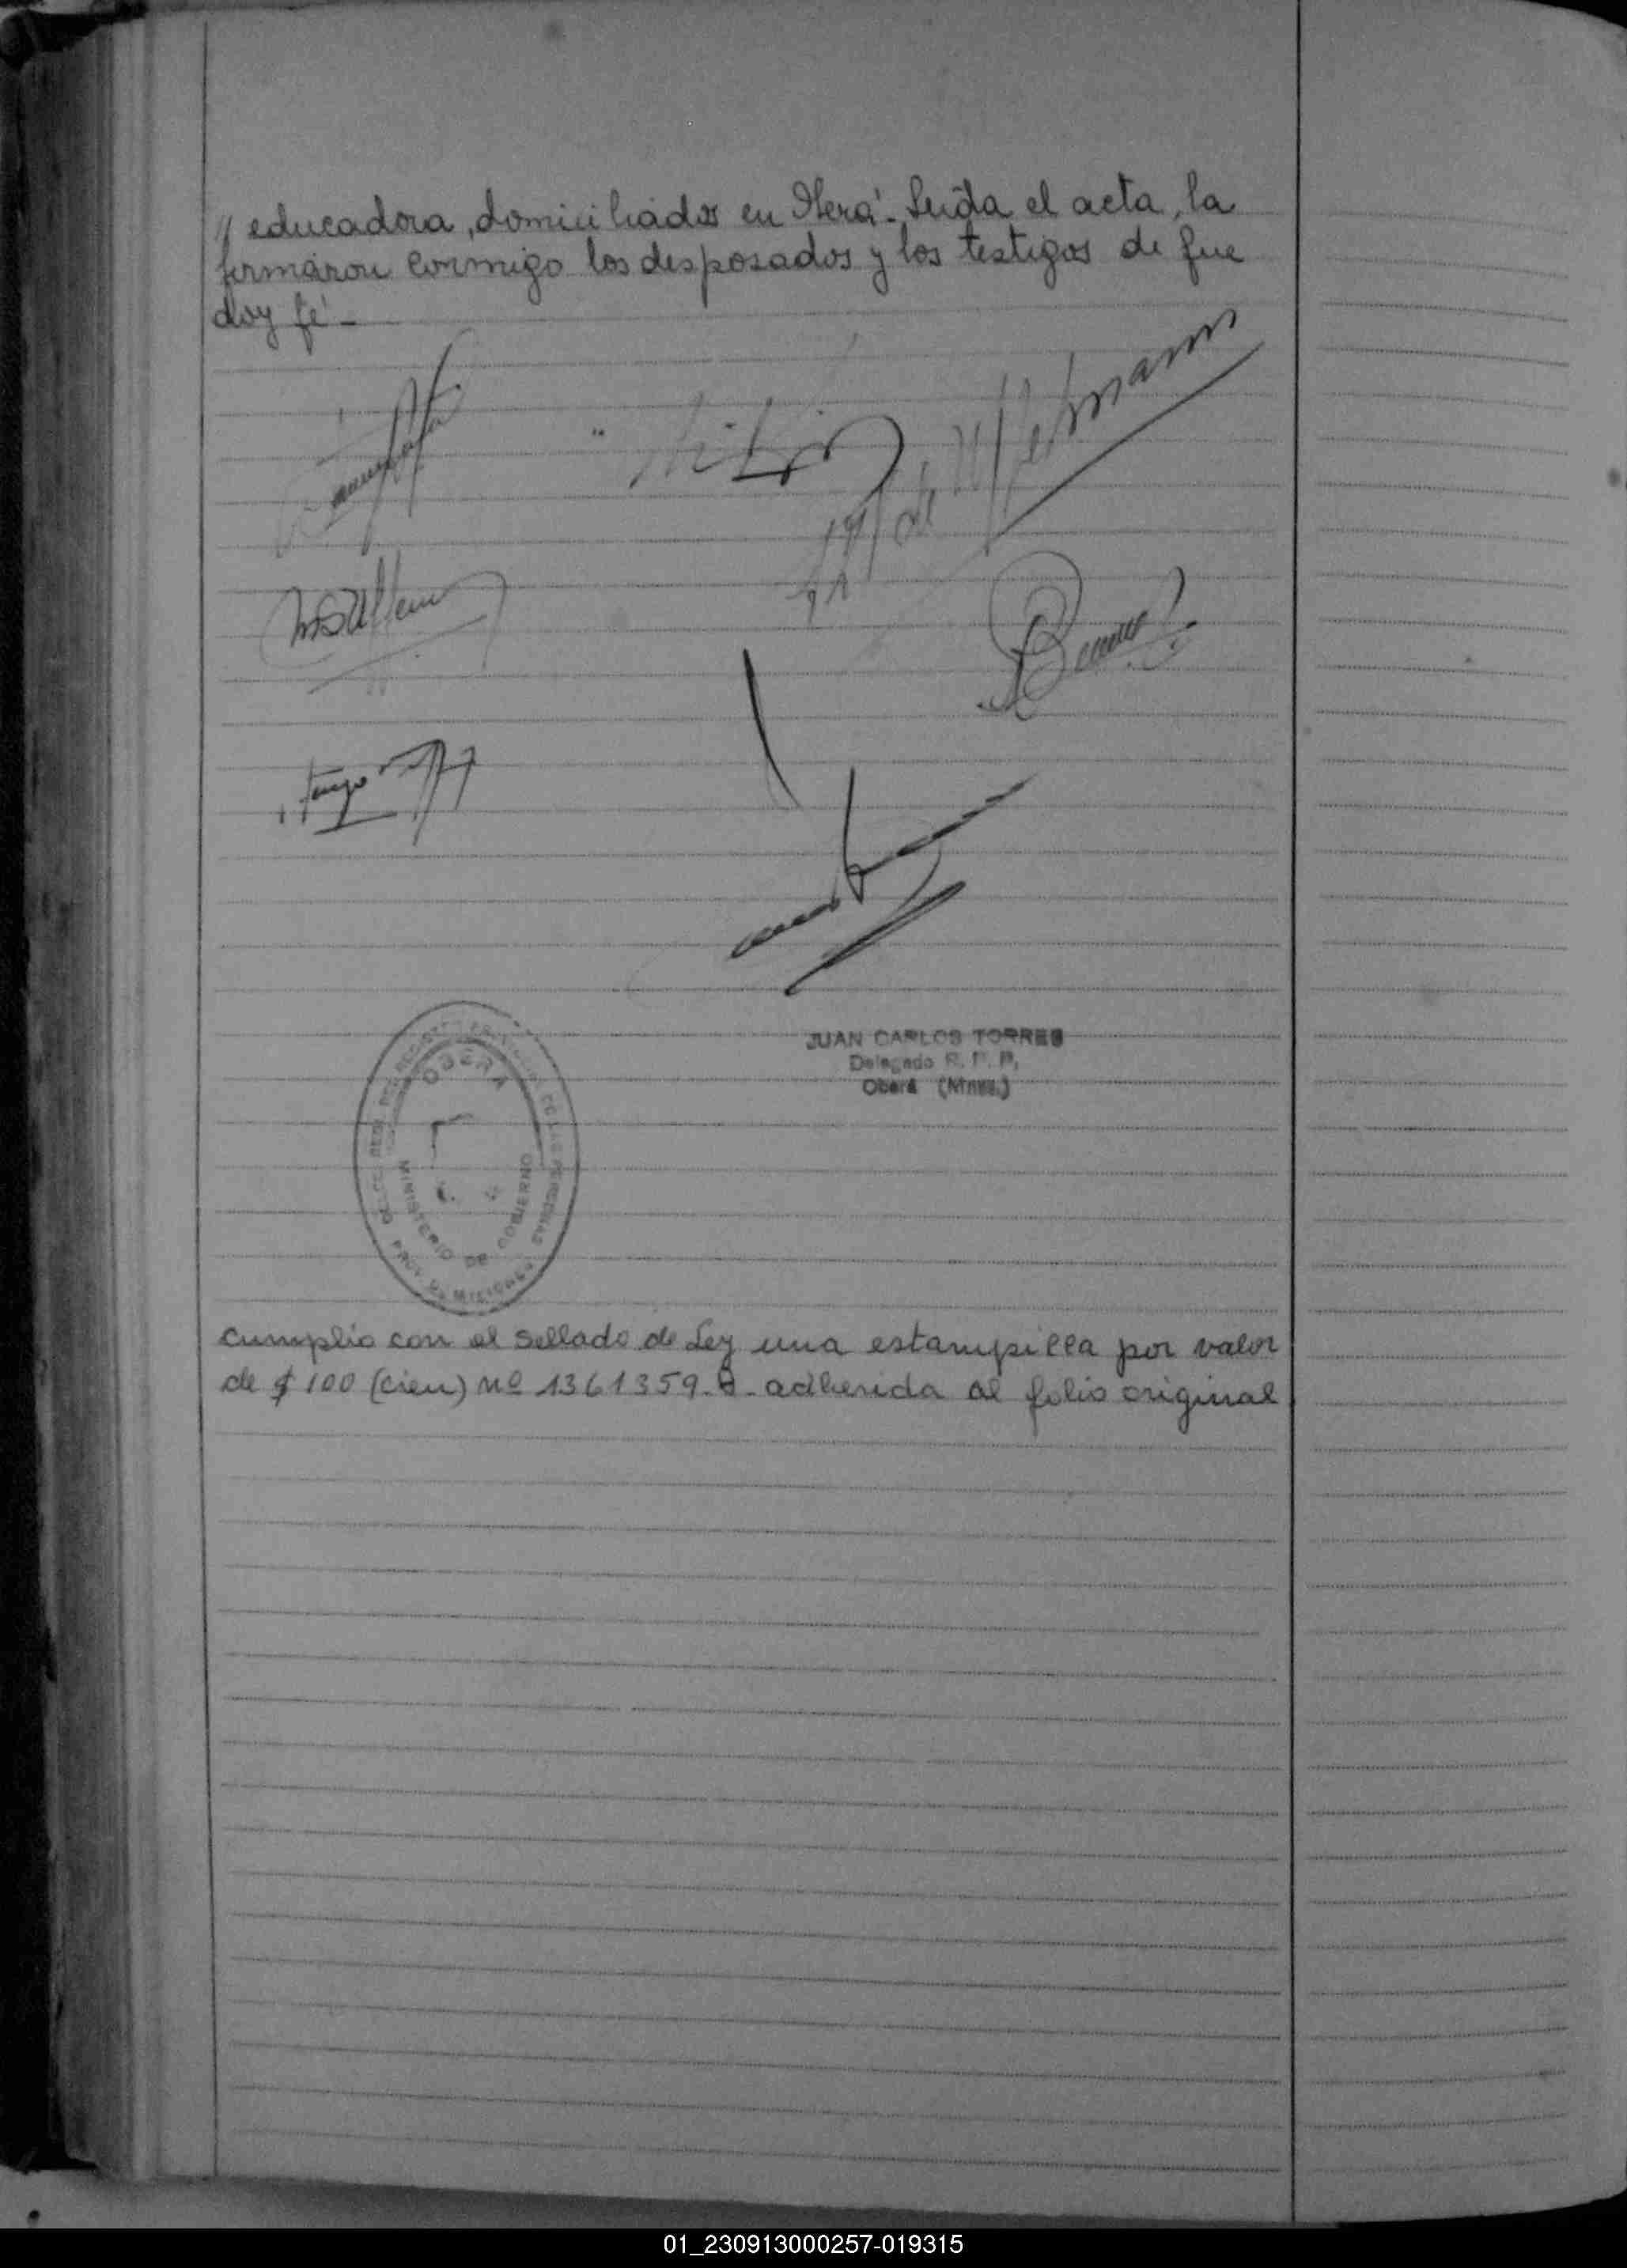 // educadora, domiciliados en Oberá.- Leída el acta, la
firmaron conmigo los desposados y los testigos de que
doy fé.-
JUAN CARLOS TORRES
Delegado R. P. P.
Oberá (Mnes.)
DELEG. REGL. DEL REGISTRO PROVINCIAL DE LAS PERSONAS
OBERA
MINISTERIO DE GOBIERNO
PROV. DE MISIONES
cumplio con el sellado de Ley una estampilla por valor
de $ 100 (cien) Nº 1361359-B- adherida al folio original
01_230913000257-019315